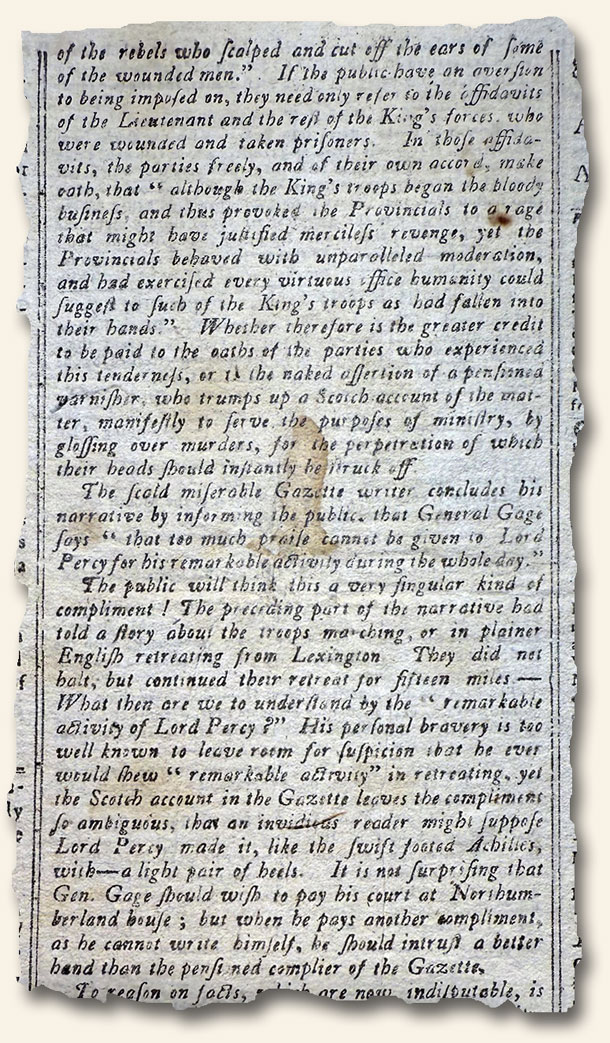 of the rebels who ſcalped and cut off the ears of ſome
of the wounded men.” If the public have an averſion
to being impoſed on, they need only refer to the affidavits
of the Lieutenant and the reſt of the King's forces who
were wounded and taken priſoners. In thoſe affida-
vits, the parties freely, and of their own accord, make
oath, that “ although the King's troops began the bloody
buſineſs, and thus provoked the Provincials to a rage
that might have juſtified mercileſs revenge, yet the
Provincials behaved with unparalleled moderation,
and had exerciſed every virtuous office humanity could
ſuggeſt to ſuch of the King's troops as had fallen into
their hands.” Whether therefore is the greater credit
to be paid to the oaths of the parties who experienced
this tenderneſs, or to the naked aſſertion of a penſioned
varniſher, who trumps up a Scotch account of the mat-
ter, manifeſtly to ſerve the purpoſes of miniſtry, by
gloſſing over murders, for the perpetration of which
their heads ſhould inſtantly be ſtruck off
The ſcald miſerable Gazette writer concludes his
narrative by informing the public, that General Gage
ſays “ that too much praiſe cannot be given to Lord
Percy for his remarkable activity during the whole day.”
The public will think this a very ſingular kind of
compliment ! The preceding part of the narrative had
told a ſtory about the troops marching, or in plainer
Engliſh retreating from Lexington They did not
halt, but continued their retreat for fifteen miles —
What then are we to underſtand by the “ remarkable
activity of Lord Percy ?” His perſonal bravery is too
well known to leave room for ſuſpicion that he ever
would ſhew “ remarkable activity” in retreating, yet
the Scotch account in the Gazette leaves the compliment
ſo ambiguous, that an invidious reader might ſuppoſe
Lord Percy made it, like the ſwift footed Achilles,
with—a light pair of heels. It is not ſurpriſing that
Gen. Gage ſhould wiſh to pay his court at Northum-
berland houſe ; but when he pays another compliment,
as he cannot write himſelf, he ſhould intruſt a better
hand than the penſi ned complier of the Gazette.
To reaſon on facts, which are now indiſputable, is